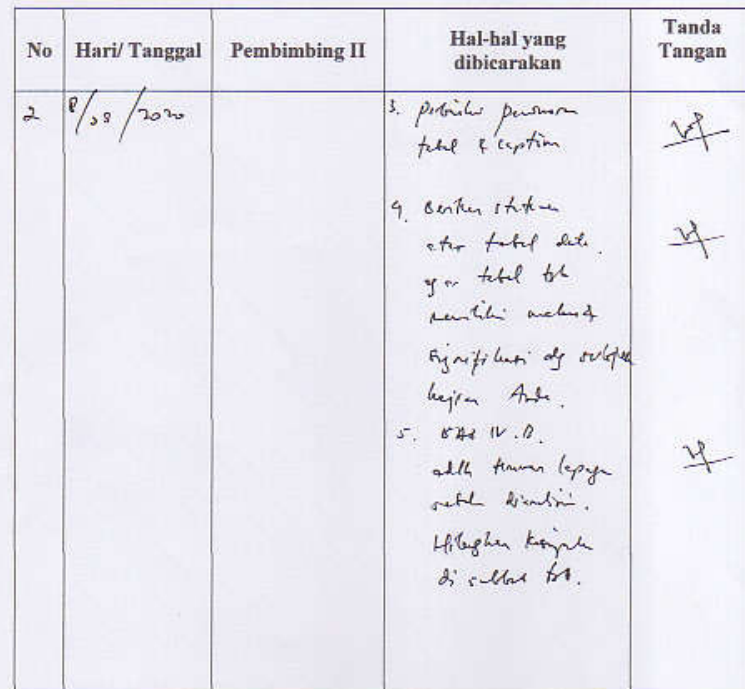 No Hari/ Tanggal Pembimbing II Hal-hal yang dibicarakan Tanda Tangan
2 8/08/2020 3. Perbaiki penomoran
tabel & caption
4. Berikan
atas tabel data
agar tabel tsb
memiliki makna &
signifikasi dg subjek
kajian Anda.
5. BAB IV.B.
adlh temuan lapangan
Hilangkan
di subbab tsb.